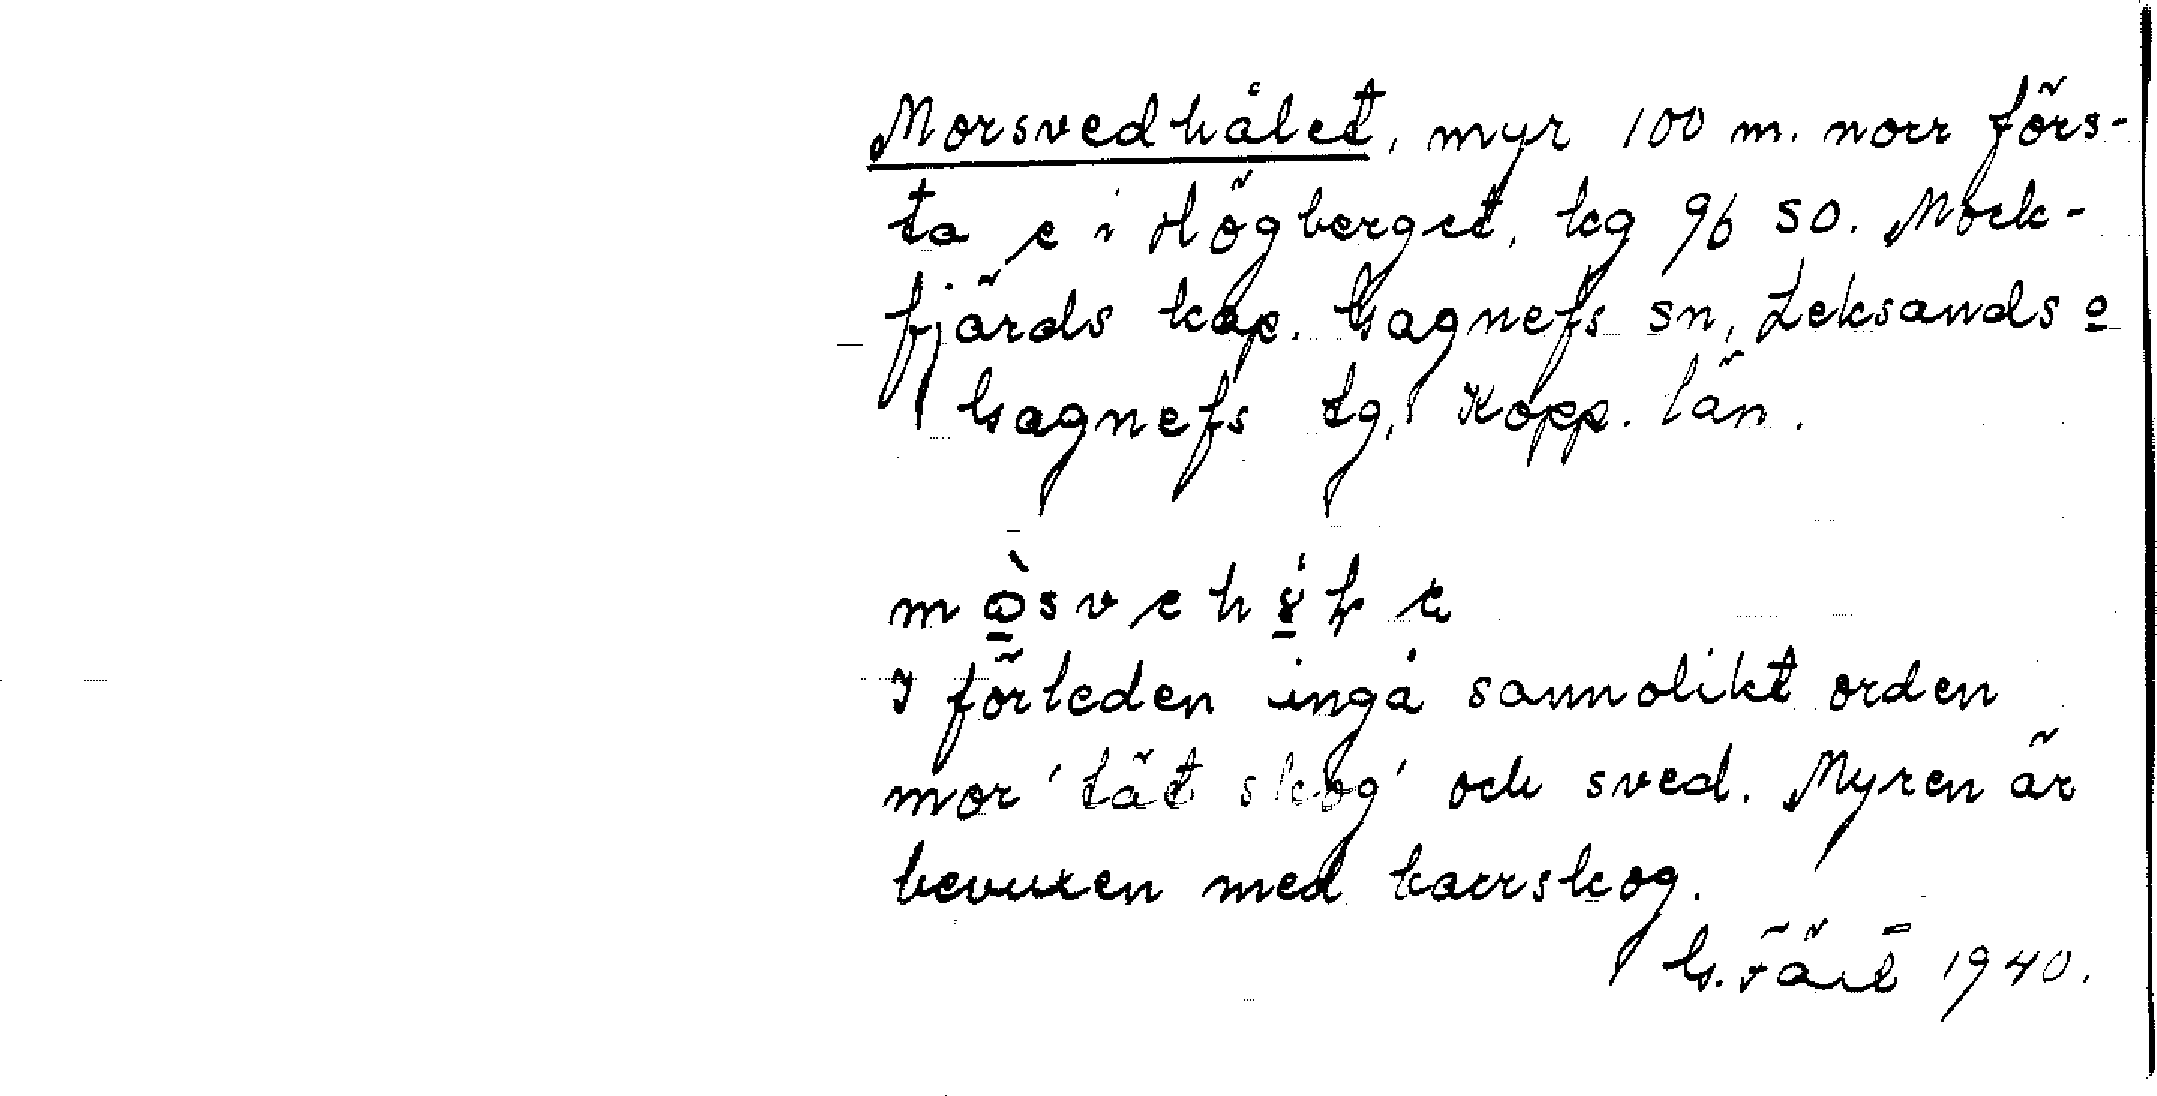 Morsvedhålet, myr 100 m. norr förs-
ta e i Högberget, kg 96 SO. Mock-
fjärds kap. Gagnefs sn, Leksands o
Gagnefs tg, Kopp. län.
I förleden ingå sannolikt orden
mor 'tät skog' och sved. Myren är
bevuxen med barrskog.
G. 1940.